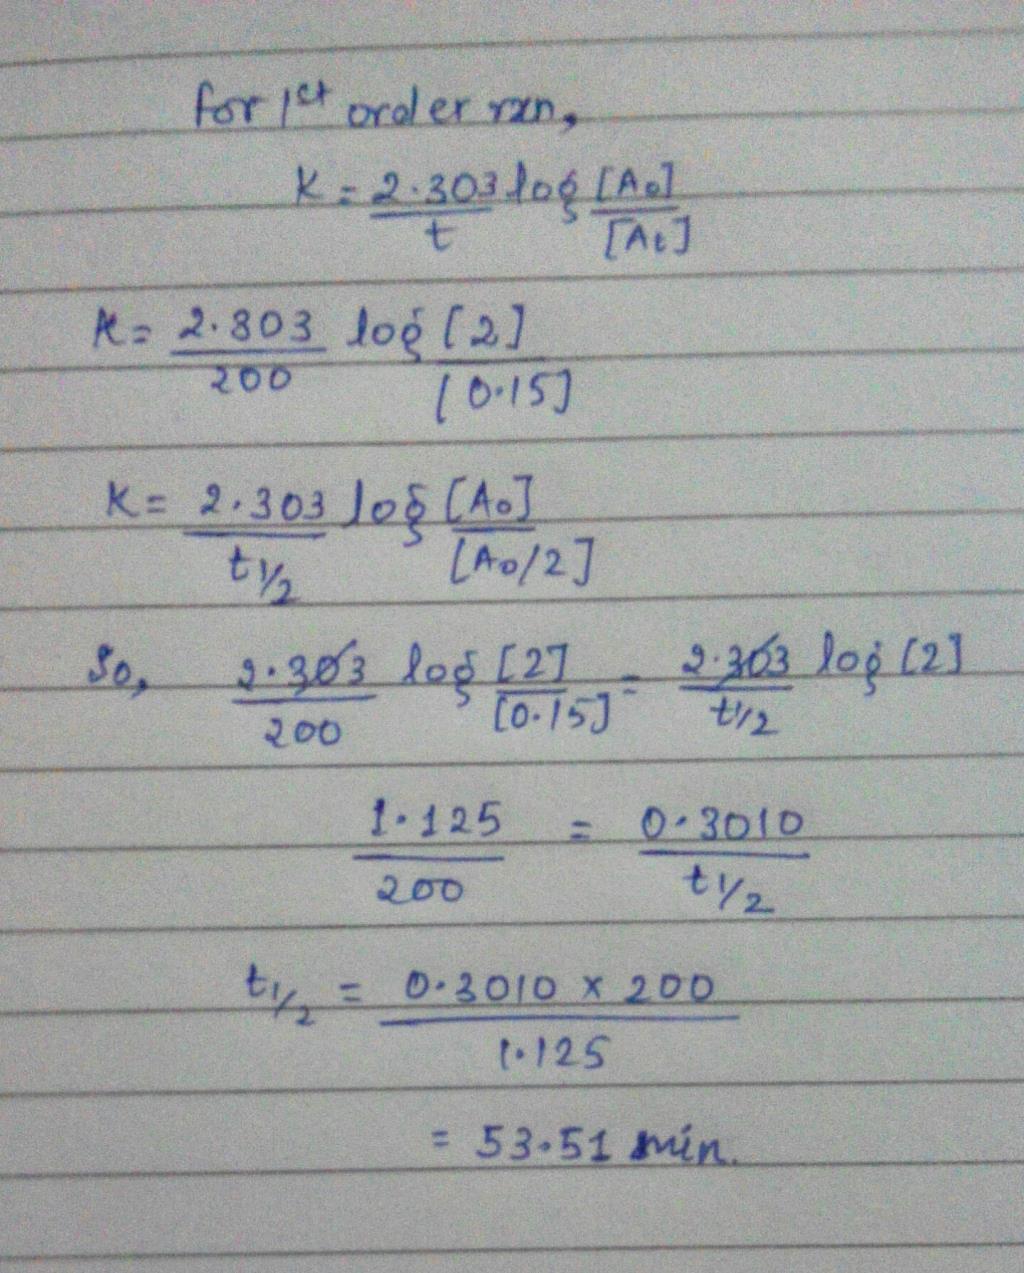 for 1st order rxn,
K = 2.303/t log [A0]/[At]
K = 2.303/200 log [2]/[0.15]
K = 2.303/t1/2 log [A0]/[A0/2]
So, 2.303/200 log [2]/[0.15] = 2.303/t1/2 log [2]
1.125/200 = 0.3010/t1/2
t1/2 = 0.3010 x 200/1.125
= 53.51 min.